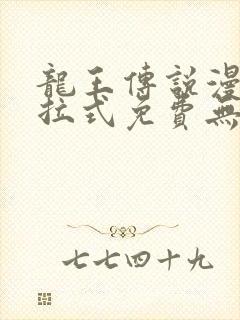 龍王傳說漫
拉式免費無
七七四十九